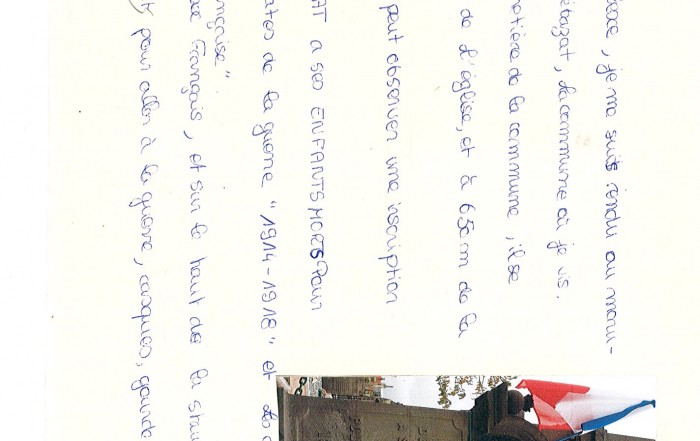 , je me suis rendu au monu-
ébazat, la commune où je vis.
metière de la commune, il se
de l'église, et à 65cm de la
peut observer une inscription
AT a ses ENFANTS MORTS Pour
ates de la guerre "1914-1918" et
nçaise"
Français, et sur le haut de la
pour aller à la guerre, casques, gourde